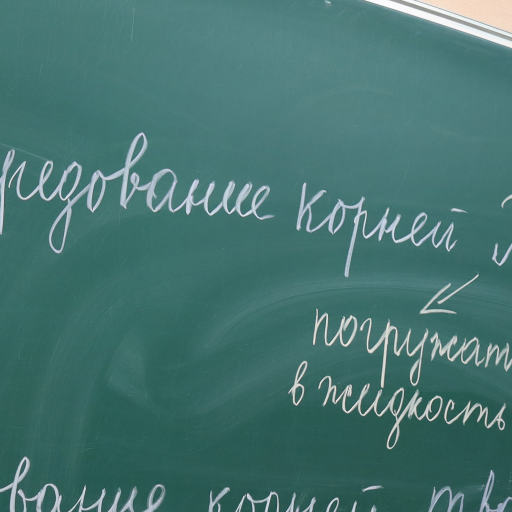 редование корней
погружат
в жидкость
вание корней тво